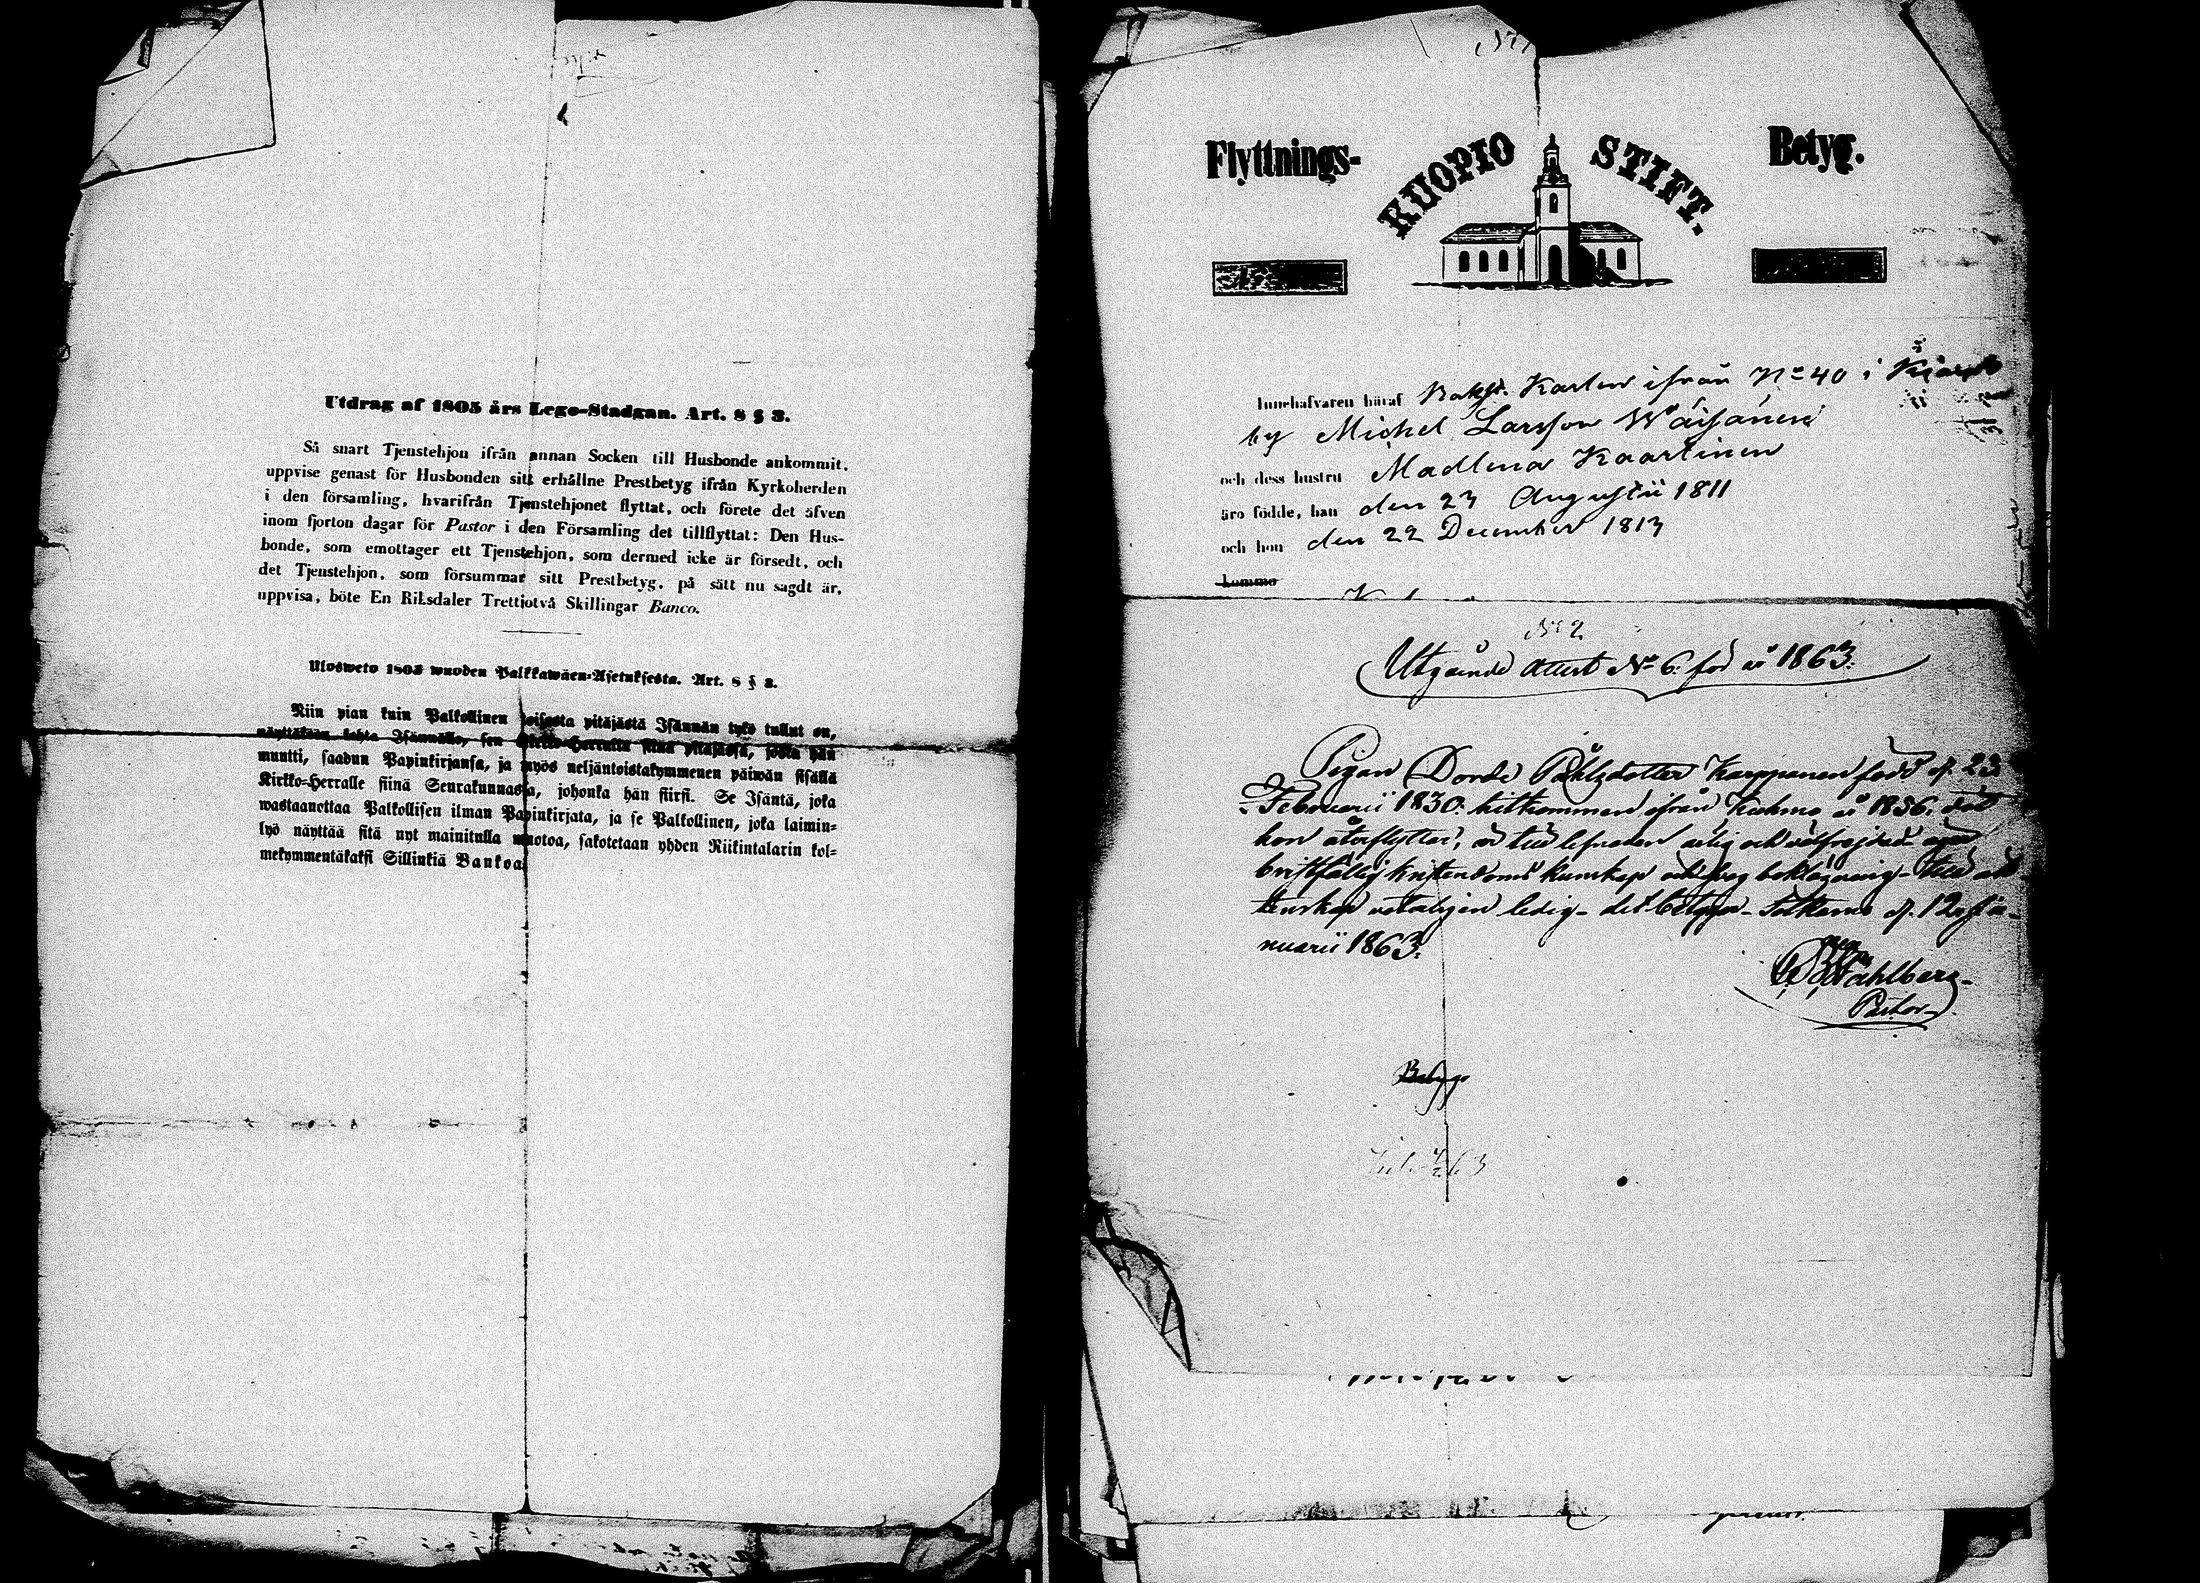 Utdrag af 1805 års Lego-Stadgan. Art. 8 § 3.
Så snart Tjenstehjon ifrån annan Socken till Husbonde ankommit,
uppvise genast för Husbonden sitt erhållne Prestbetyg ifrån Kyrkoherden
i den församling, hvarifrån Tjenstehjonet flyttat, och förete det äfven
inom fjorton dagar för Pastor i den Församling det tillflyttat: Den Hus-
bonde, som emottager ett Tjenstehjon, som dermed icke är försedt, och
det Tjenstehjon, som försummar sitt Prestbetyg, på sätt nu sagdt är,
uppvisa, böte En Riksdaler Trettiotvå Skillingar Banco.
Ulosweto 1805 wuoden Palkkawäen-Asetuksesta. Art. 8 § 3.
Niin pian kuin Palkollinen toisesta pitäjästä Isännän tykö tullut on,
näyttäköön kohta Isännälle, sen Kirkko-Herralta siinä pitäjässä, josta hän
muutti, saadun Papinkirjansa, ja myös neljäntoistakymmenen päiwän sisällä
Kirkko-Herralle siinä Seurakunnassa, johonka hän siirsi. Se Isäntä, joka
wastaanottaa Palkollisen ilman Papinkirjata, ja se Palkollinen, joka laimin-
lyö näyttää sitä nyt mainitulla muotoa, sakotetaan yhden Riikintalarin kol-
mekymmentäkaksi Sillinkiä Bankoa.
Flyttnings- KUOPIO STIFT. Betyg.
Innehafvaren häraf Karlen ifrån No 40 i
by Michel Larsson Wäisänen
och dess hustru Madlena Kaartinen
äro födde, han den 23 Augustii 1811
och hon den 22 December 1813
komma
No 2
Utgående Attest No 6. för år 1863.
Pigan Dorde Påhlsdotter Karppanen född d. 23
Februarii 1830. hitkommen ifrån Kuhmo år 1856. dit
hon återflyttar, är till lefnaden ärlig och välfrejdad eger
bristfällig kristendoms kunskap och svag till äk-
tenskap ledig - det betygar Sotkamo d. 12 Ja-
nuarii 1863.
Ståhlberg
Pastor
Betyg